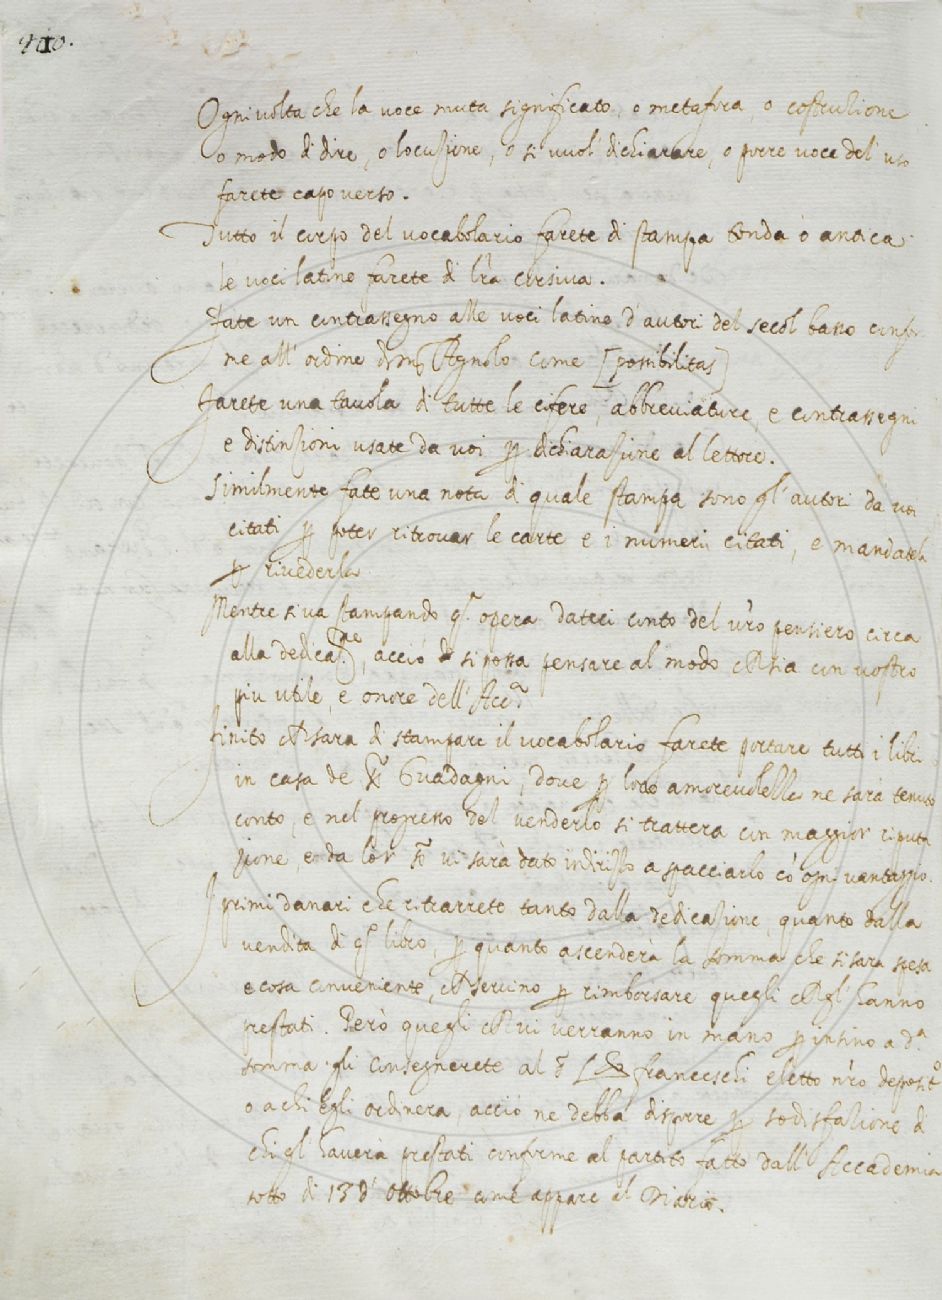 Ogni volta che la voce muta significato, o metafora, o costruzione
o modo di dire, o locuzione, o si vuol dichiarare, o porre voce del' uso
farete capo verso.
Tutto il corpo del vocabolario farete di stampa tonda ò antica
le voci latine farete di lra corsiva.
Fate un contrassegno alle voci latine d'autori del secol basso confor-
me all' ordine di Agnolo come [possibilitas]
Farete una tavola di tutte le cifere, abbreviature, e contrassegni
e distinzioni usate da voi p dichiarazione al lettore.
Similmente fate una nota di quale stampa sono gl' autori da voi
citati p poter ritrovar le carte e i numeri citati, e mandatela
p rivederla
Mentre si va stampando qa opera dateci conto del vro pensiero circa
alla dedicane, acciò si possa pensare al modo che sia con vostro
piu utile, e onore dell' Accª
Finito che sara di stampare il vocabolario farete portare tutti i libri
in casa de Guadagni, dove p loro amorevolezza ne sarà tenuto
conto, e nel progresso del venderlo si trattera con maggior riputa
zione, e da lor vi sarà dato indirizzo a spacciarlo cò ogni vantaggio.
I primi danari che ritrarrete tanto dalla dedicazione, quanto dalla
vendita di qo libro, p quanto ascenderà la somma che si sarà spesa
e cosa conveniente, che servino p rimborsare quegli che gl' hanno
prestati. Però quegli che vi verranno in mano p insino a dª
somma gli consegnerete al franceschi eletto nro depositº
o a chi Egli ordinera, acciò ne debba disporre p sodisfazione di
chi gl' haverà prestati conforme al partito fatto dall' Accademia
sotto di 13 d' Ottobre come appare al Diario.